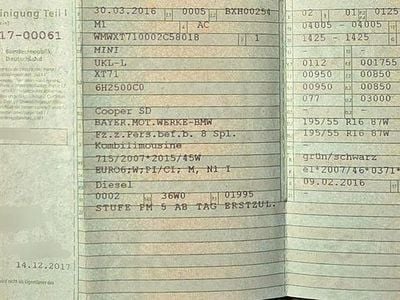 inigung Teil I
17-00061
Bundesrepublik
Deutschland
14.12.2017
30.03.2016 0005 BXH00254
M1 AC
WMWXT710002C58018 1
MINI
UKL-L
XT71
6H2500C0
Cooper SD
BAYER.MOT.WERKE-BMW
Fz.z.Pers.bef.b. 8 Spl.
Kombilimousine
715/2007*2015/45W
EURO6;W;PI/CI; M, N1 I
Diesel
0002 36W0 01995
STUFE PM 5 AB TAG ERSTZUL.
02 01 0125
04005 - 04005 -
1425 - 1425 -
0112 001755
00950 00850
00950 00850
077 03000
195/55 R16 87W
195/55 R16 87W
grün/schwarz
e1*2007/46*0371*
09.02.2016